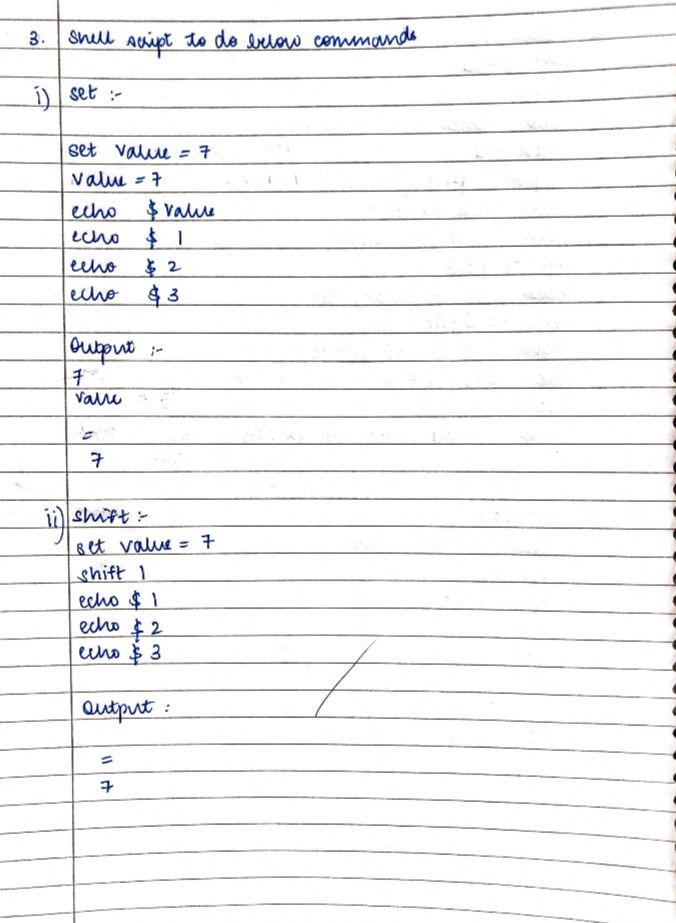 3. Shell script to do below commands
i) set :-
set value = 7
value = 7
echo $ value
echo $ 1
echo $ 2
echo $ 3
Output :-
7
value
=
7
ii) shift :-
set value = 7
shift 1
echo $ 1
echo $ 2
echo $ 3
Output :
=
7